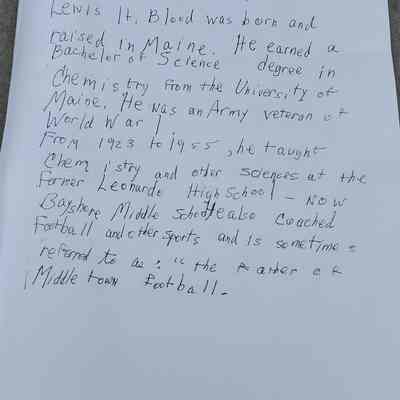 Lewis H. Blood was born and
raised in Maine. He earned a
Bachelor of Science degree in
Chemistry from the University of
Maine. He was an Army veteran of
World War I
From 1923 to 1955, he taught
Chemistry and other sciences at the
former Leonardo High School - Now
Bayshore Middle School. He also coached
football and other sports and is sometimes
referred to as: "the Father of
Middletown Football.